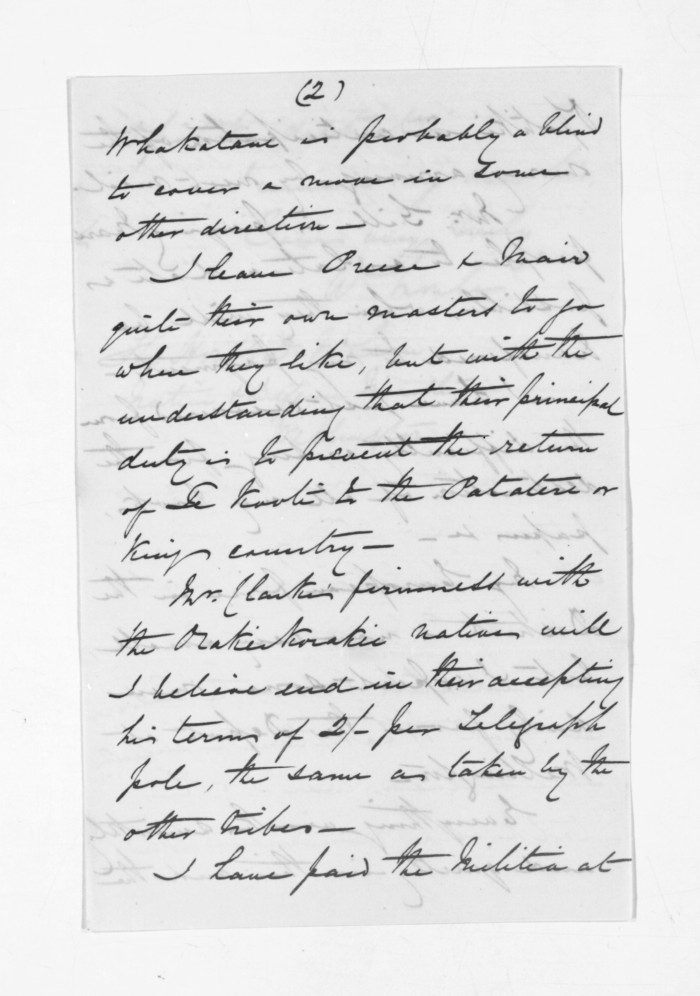 (2)
Whakatane is probably a blind
to cover a move in some
other direction —
I leave Preece & Mair
quite their own masters to go
where they like, but with the
understanding that their principal
duty is to prevent the return
of Te Kooti to the Patatere or
King country —
Mr. Clarke's firmness with
the Orakeikorakei natives will
I believe end in their accepting
his terms of 2/- per Telegraph
pole, the same as taken by the
other tribes —
I have paid the Militia at